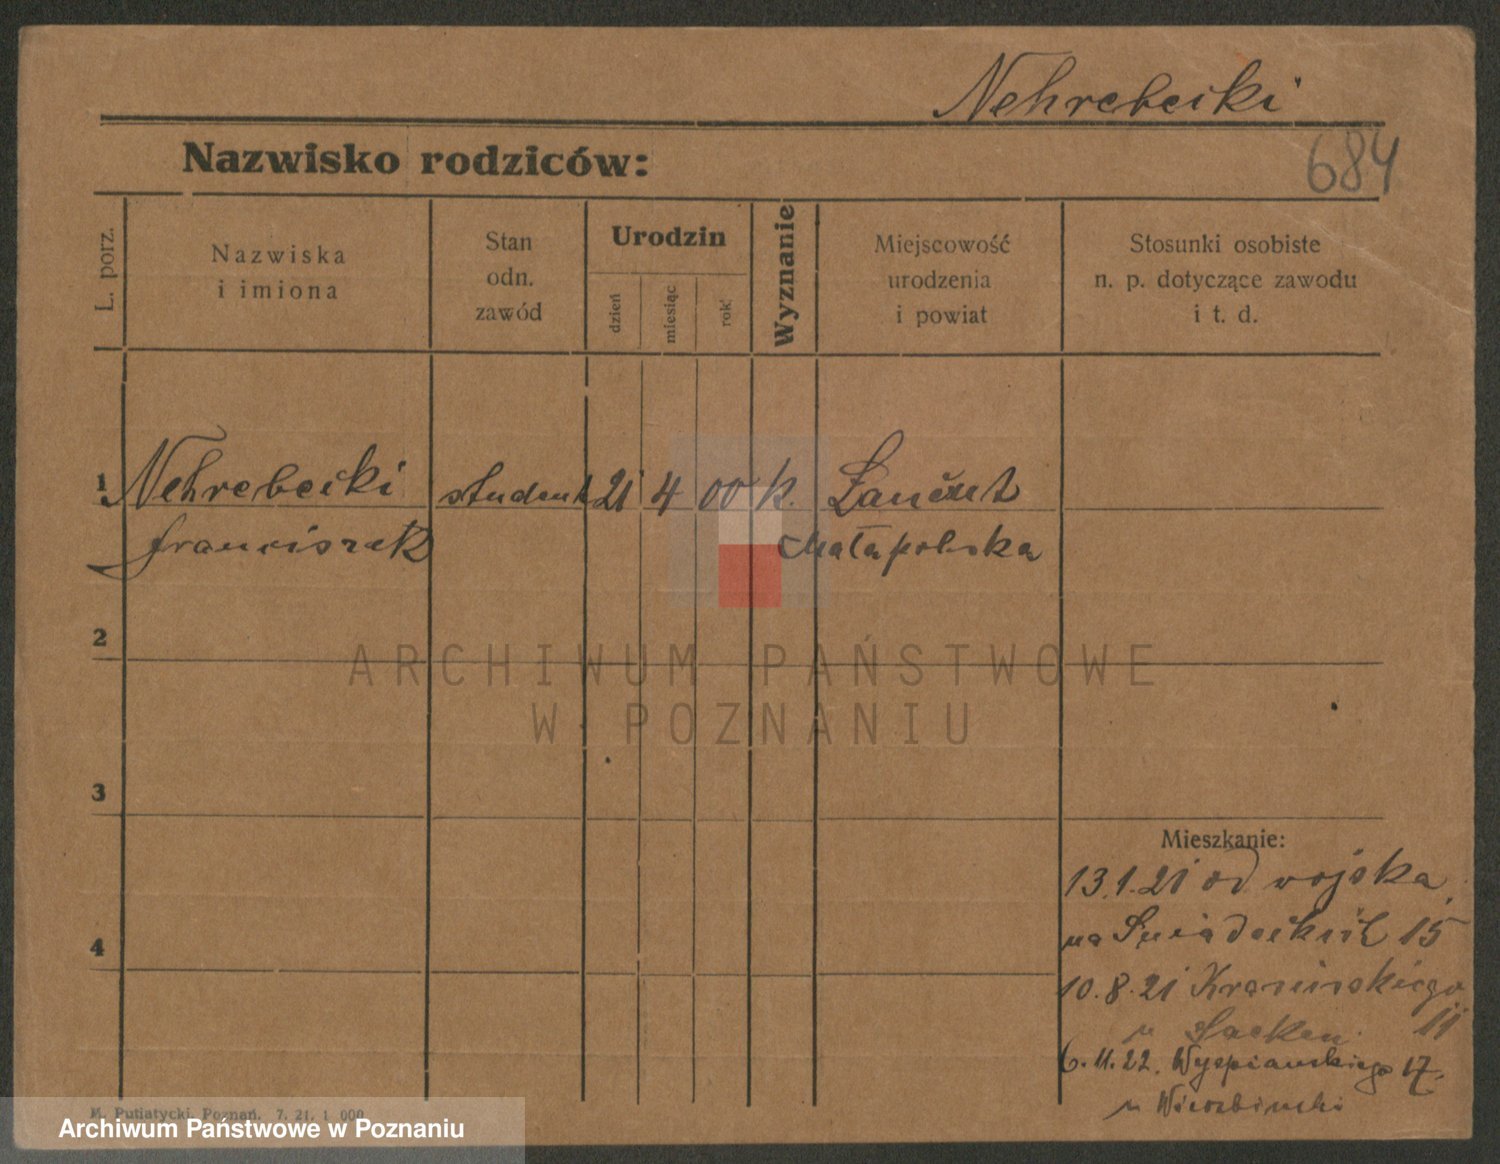 Nehrebecki
684
Nazwisko rodziców:
L. porz.
Nazwiska
i imiona
Stan
odn.
zawód
Urodzin
dzień
miesiąc
rok
Wyznanie
Miejscowość
urodzenia
i powiat
Stosunki osobiste
n. p. dotyczące zawodu
i t. d.
1 Nehrebecki student 21 4 00 k. Łańcut
Franciszek Małapolska
ARCHIWUM PAŃSTWOWE
W POZNANIU
2
3
4
Mieszkanie:
13.1.21 od wojska
na Śniadeckich 15
10.8.21 Krasińskiego
11
6.11.22. Wyspiańskiego 17.
M. Putiatycki, Poznań. 7. 21. 1 000
Archiwum Państwowe w Poznaniu